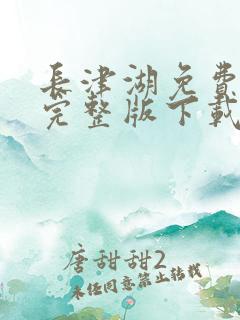 長津湖免費
完整版下載
唐甜甜2
未經同意禁止轉載